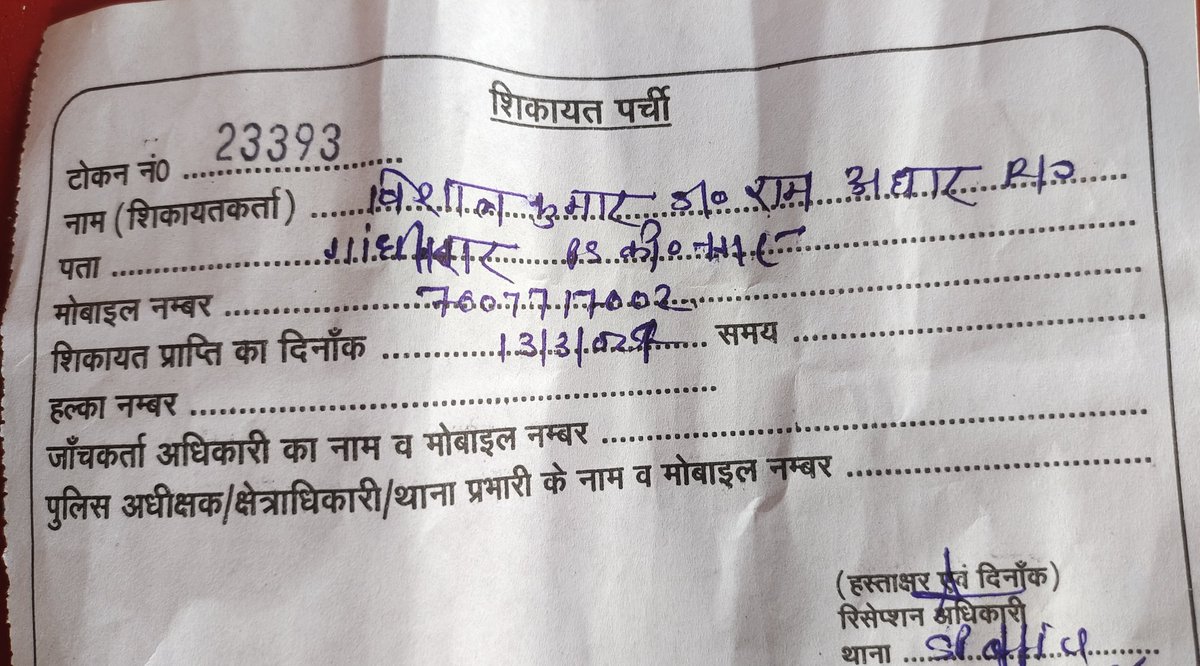 शिकायत पर्ची
टोकन नं0 23393
नाम (शिकायतकर्ता) विशाल कुमार S/o राम अधार R/o
पता गांधीनगर
मोबाइल नम्बर 7607717002
शिकायत प्राप्ति का दिनाँक 13/3/024 समय
हल्का नम्बर
जाँचकर्ता अधिकारी का नाम व मोबाइल नम्बर
पुलिस अधीक्षक/क्षेत्राधिकारी/थाना प्रभारी के नाम व मोबाइल नम्बर
(हस्ताक्षर एवं दिनाँक)
रिसेप्शन अधिकारी
थाना